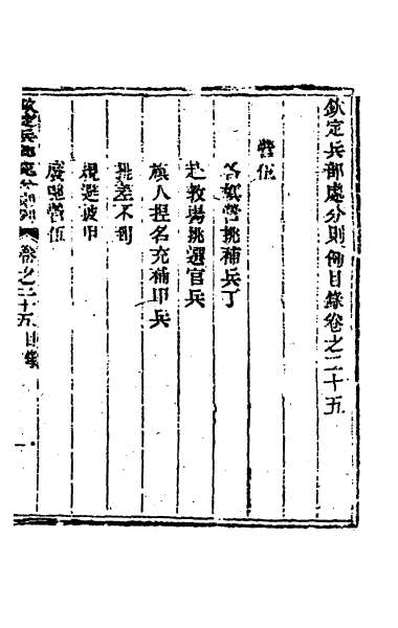 欽定兵部處分則例目錄卷之二十五
營伍
各旗營挑補兵丁
赴教場挑選官兵
旗人捏名充補甲兵
挑差不到
規避披甲
廢弛營伍
欽定兵部處分則例 卷之二十五目錄 一